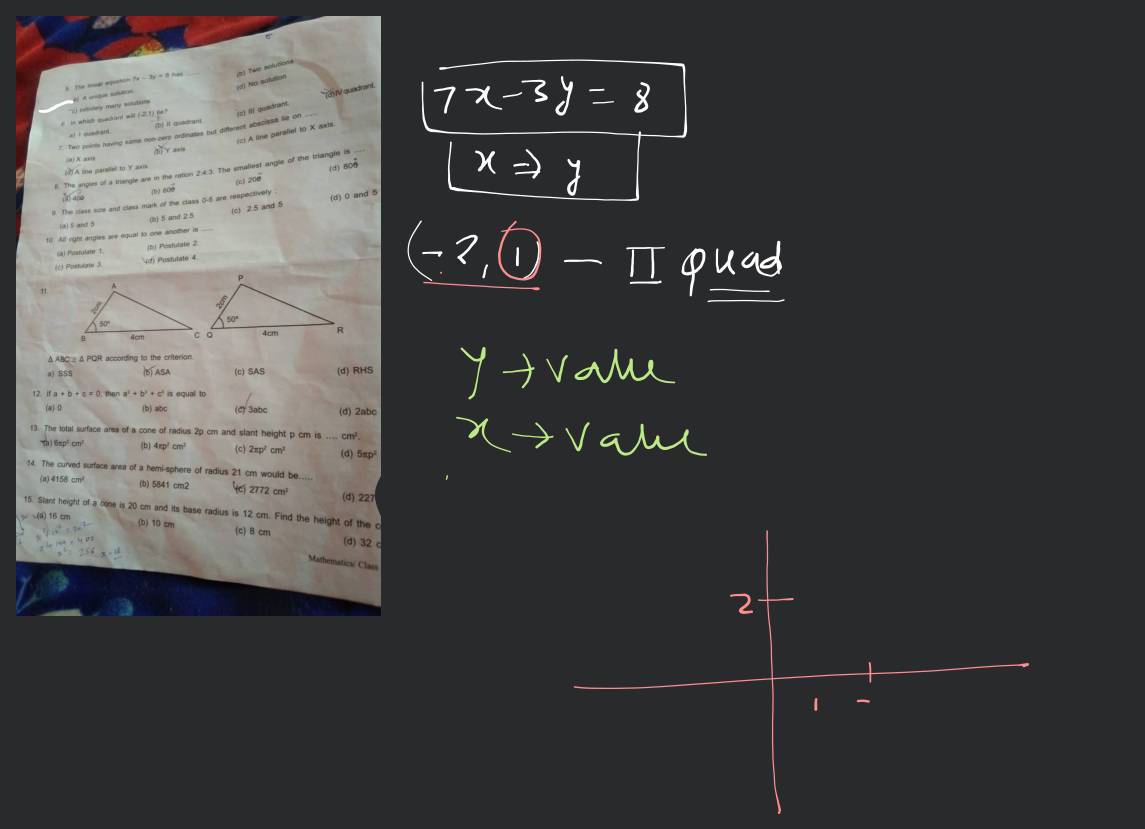 5. The linear equation 7x - 3y = 8 has ......
a) A unique solution. (b) Two solutions
(c) Infinitely many solutions (d) No solution
6. In which quadrant will (-2,1) lie?
a) I quadrant. (b) II quadrant. (c) III quadrant. (d) IV quadrant.
7. Two points having same non-zero ordinates but different abscissa lie on ......
(a) X axis (b) Y axis (c) A line parallel to X axis.
(d) A line parallel to Y axis
8. The angles of a triangle are in the ration 2:4:3. The smallest angle of the triangle is ....
(b) 60 (c) 20 (d) 80
9. The class size and class mark of the class 0-5 are respectively :
(a) 5 and 5 (b) 5 and 2.5 (c) 2.5 and 5 (d) 0 and 5
10. All right angles are equal to one another is .....
(a) Postulate 1. (b) Postulate 2.
(c) Postulate 3. (d) Postulate 4.
11.
A P
2cm 50° 2cm 50°
B 4cm C Q 4cm R
Δ ABC ≅ Δ PQR according to the criterion.
a) SSS (b) ASA (c) SAS (d) RHS
12. If a + b + c = 0, then a³ + b³ + c³ is equal to
(a) 0 (b) abc (c) 3abc (d) 2abc
13. The total surface area of a cone of radius 2p cm and slant height p cm is .... cm².
(a) 6πp² cm² (b) 4πp² cm² (c) 2πp² cm² (d) 5πp²
14. The curved surface area of a hemi-sphere of radius 21 cm would be.....
(a) 4158 cm² (b) 5841 cm2 (c) 2772 cm² (d) 227
15. Slant height of a cone is 20 cm and its base radius is 12 cm. Find the height of the c
(a) 16 cm (b) 10 cm (c) 8 cm (d) 32 c
Mathematics/ Class
7x-3y = 8
x ⇒ y
(-2, 1) — II quad
y → value
x → value
2
1